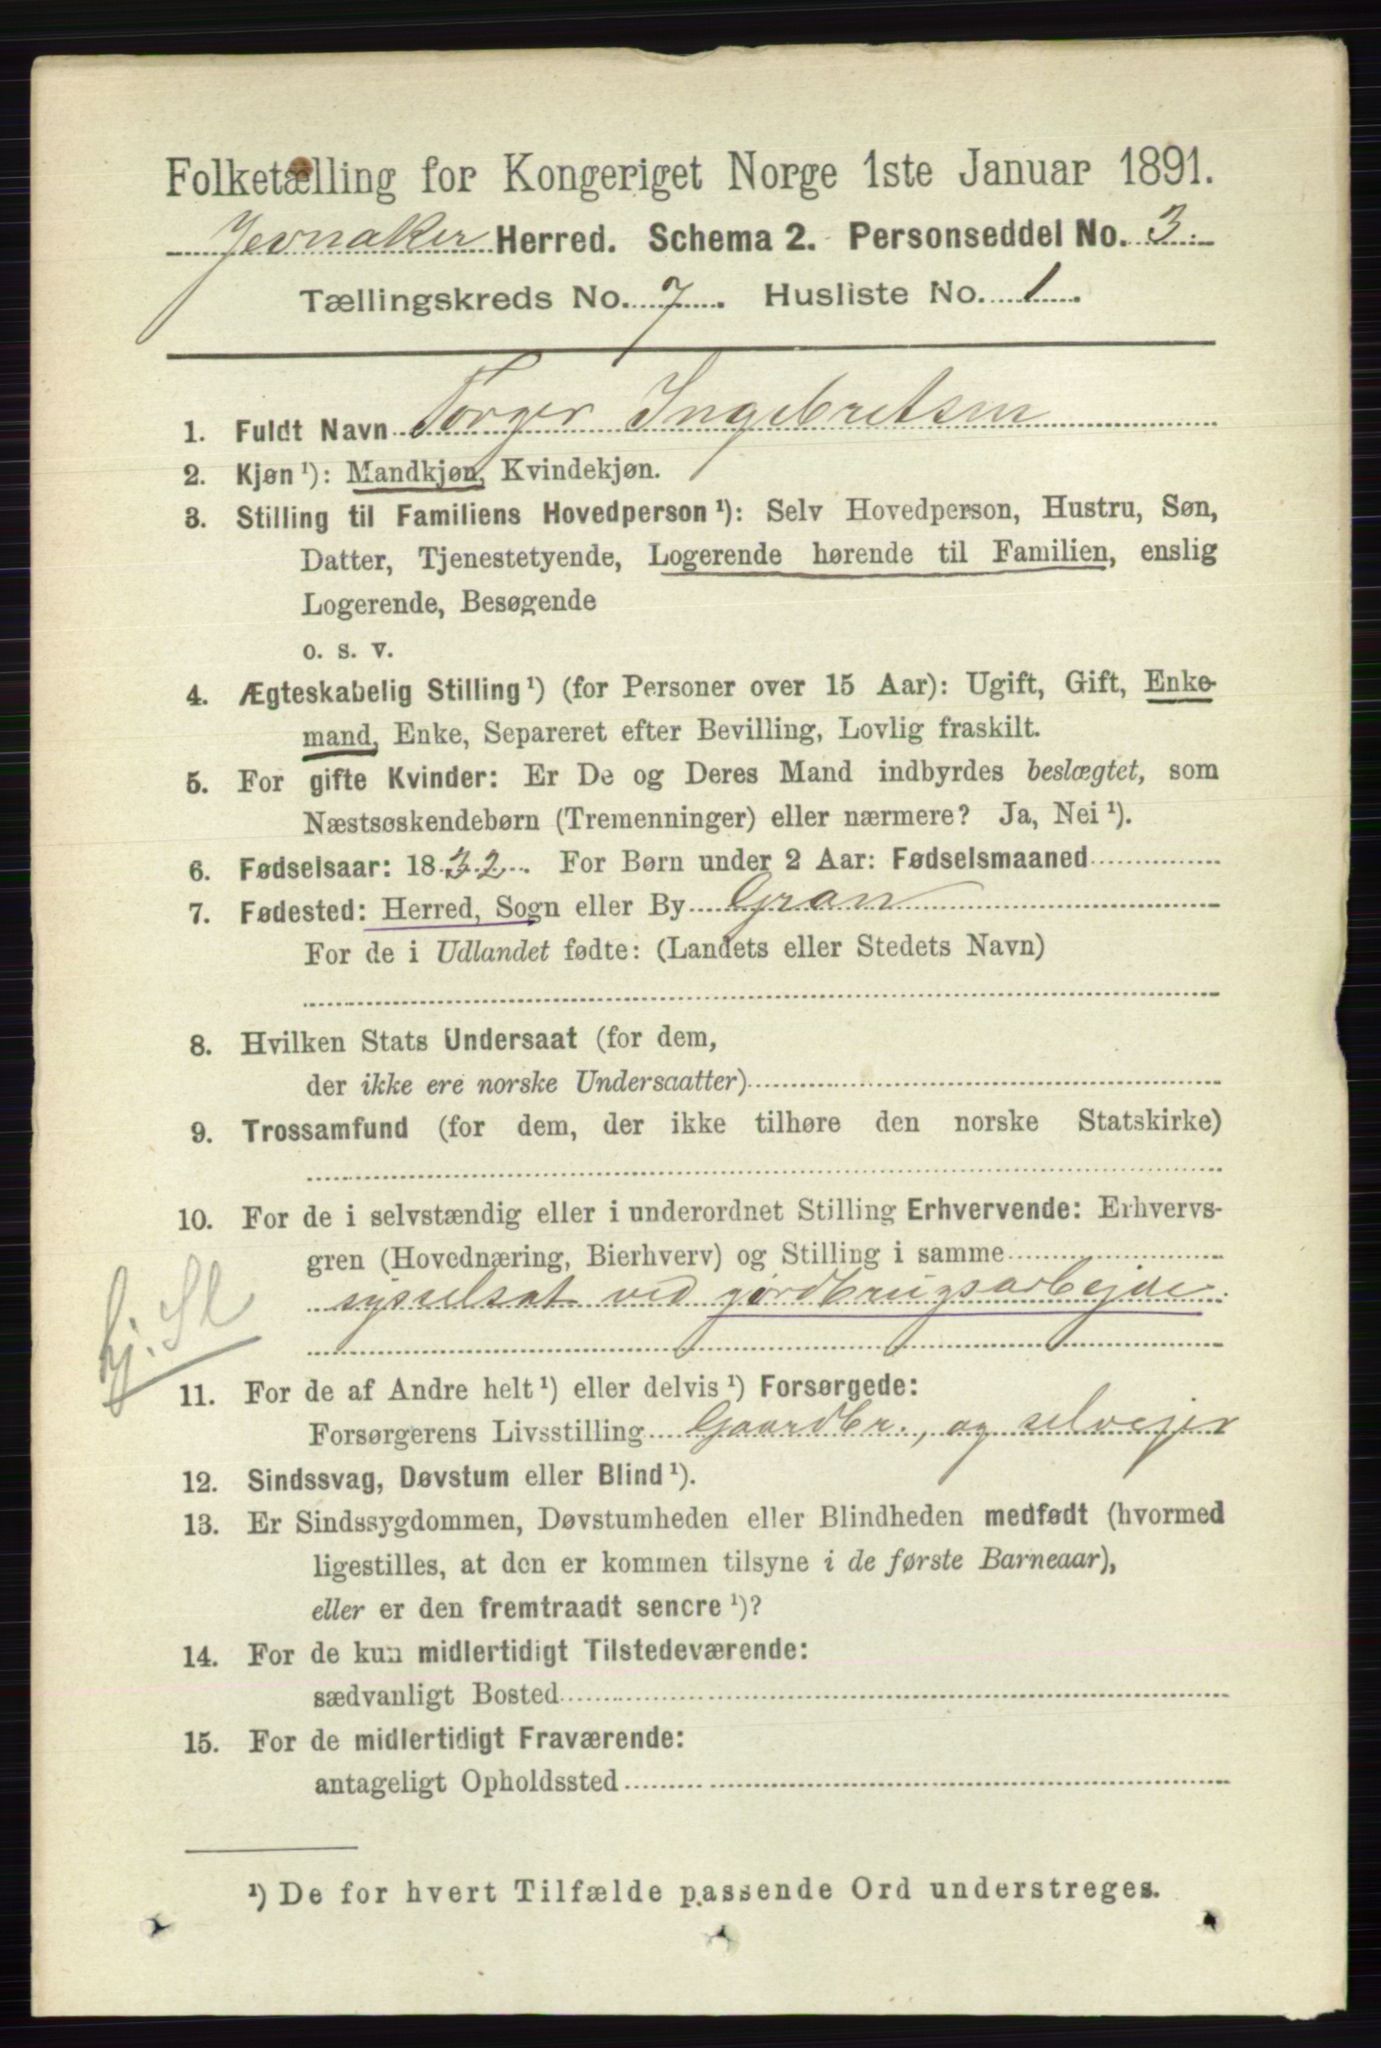 Folketælling for Kongeriget Norge 1ste Januar 1891.
Jevnaker Herred. Schema 2. Personseddel No. 3.
Tællingskreds No. 7. Husliste No. 1.
1. Fuldt Navn Torger Ingebretsen
2. Kjøn ¹): Mandkjøn, Kvindekjøn.
3. Stilling til Familiens Hovedperson ¹): Selv Hovedperson, Hustru, Søn,
Datter, Tjenestetyende, Logerende hørende til Familien, enslig
Logerende, Besøgende
o. s. v.
4. Ægteskabelig Stilling ¹) (for Personer over 15 Aar): Ugift, Gift, Enke-
mand, Enke, Separeret efter Bevilling, Lovlig fraskilt.
5. For gifte Kvinder: Er De og Deres Mand indbyrdes beslægtet, som
Næstsøskendebørn (Tremenninger) eller nærmere? Ja, Nei ¹).
6. Fødselsaar: 1832. For Børn under 2 Aar: Fødselsmaaned
7. Fødested: Herred, Sogn eller By Gran
For de i Udlandet fødte: (Landets eller Stedets Navn)
8. Hvilken Stats Undersaat (for dem,
der ikke ere norske Undersaatter)
9. Trossamfund (for dem, der ikke tilhøre den norske Statskirke)
10. For de i selvstændig eller i underordnet Stilling Erhvervende: Erhvervs-
gren (Hovednæring, Bierhverv) og Stilling i samme
sysselsat ved gårdbrugsarbejde.
11. For de af Andre helt ¹) eller delvis ¹) Forsørgede:
Forsørgerens Livsstilling Gaardbr., og selvejer
12. Sindssvag, Døvstum eller Blind ¹).
13. Er Sindssygdommen, Døvstumheden eller Blindheden medfødt (hvormed
ligestilles, at den er kommen tilsyne i de første Barneaar),
eller er den fremtraadt senere ¹)?
14. For de kun midlertidigt Tilstedeværende:
sædvanligt Bosted
15. For de midlertidigt Fraværende:
antageligt Opholdssted
¹) De for hvert Tilfælde passende Ord understreges.